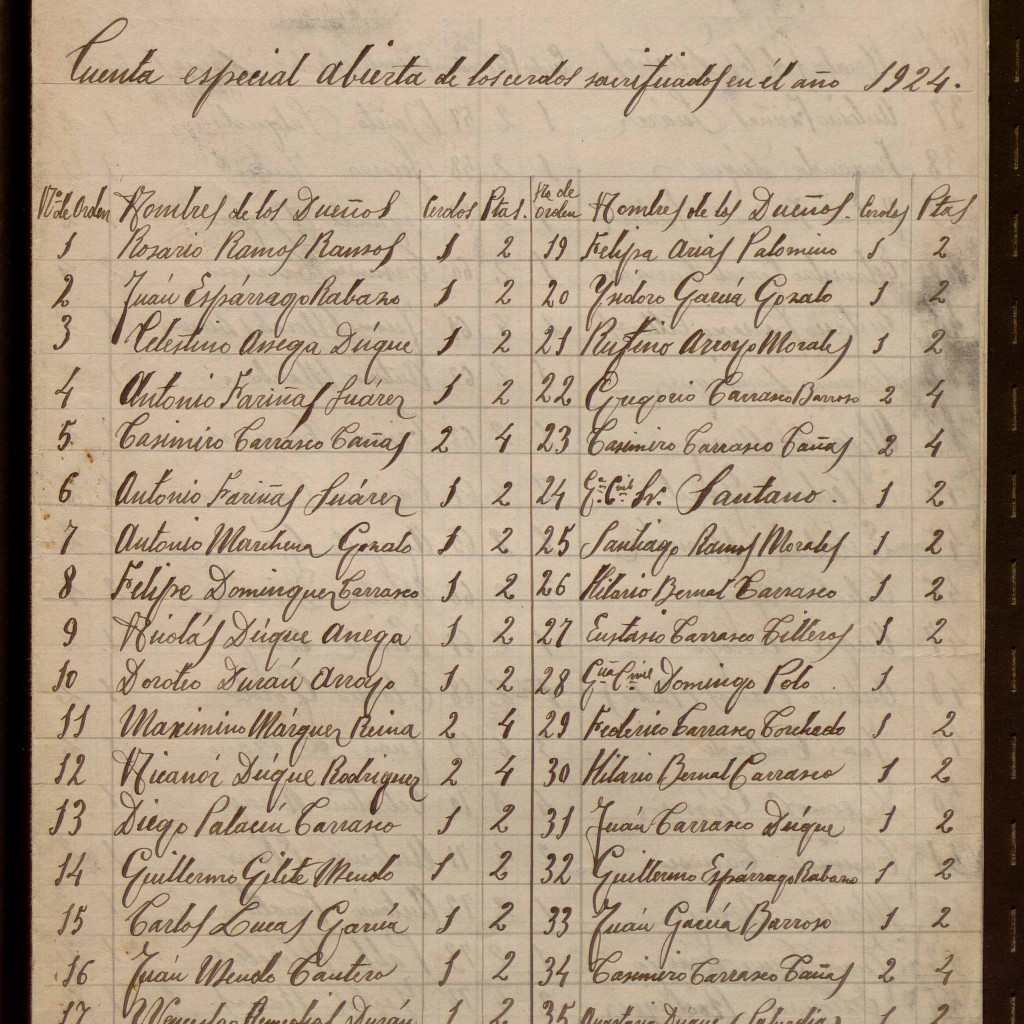 Cuenta especial abierta de los cerdos sacrificados en él año 1924.
Nº de Orden Nombres de los Dueños Cerdos Ptas. No de orden Nombres de los Dueños. Cerdos Ptas
1 Rosario Ramos Ramos 1 2 19 Felipa Arias Palomino 1 2
2 Juán Espárrago Rabazo 1 2 20 Ysidoro García Gonzalo 1 2
3 Celestino Anega Dúque 1 2 21 Rufino Arroyo Morales 1 2
4 Antonio Fariñas Suárez 1 2 22 Gregorio Carrasco Barroso 2 4
5 Casimiro Carrasco Cañas 2 4 23 Casimiro Carrasco Cañas 2 4
6 Antonio Fariñas Suárez 1 2 24 Gª. Cvil Sr. Santano. 1 2
7 Antonio Marchena Gonzalo 1 2 25 Santiago Ramos Morales 1 2
8 Felipe Dominguez Carrasco 1 2 26 Hilario Bernal Carrasco 1 2
9 Nicolás Dúque Anega 1 2 27 Eustasio Carrasco Cilleros 1 2
10 Doroteo Durán Arroyo 1 2 28 Gua Civil Domingo Polo . 1
11 Maximino Márquez Reina 2 4 29 Federico Carrasco Corchado 1 2
12 Nicanór Dúque Rodriguez 2 4 30 Hilario Bernal Carrasco 1 2
13 Diego Palacín Carrasco 1 2 31 Juán Carrasco Dúque 1 2
14 Guillermo Gilete Mendo 1 2 32 Guillermo Espárrago Rabazo 1 2
15 Carlos Lucas García 1 2 33 Juán García Barroso 1 2
16 Juán Mendo Cantero 1 2 34 Casimiro Carrasco Cañas 2 4
17 Wenceslao Remedios Durán 1 2 35 Anastasia Dúque 1 2